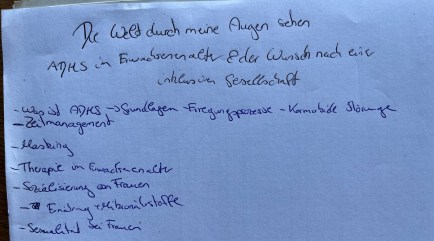 Die Welt durch meine Augen sehen
ADHS im Erwachsenenalter & der Wunsch nach einer
inklusiven Gesellschaft
- Was ist ADHS → Grundlagen - Erregungsprozesse - Komorbide Störungen
- Zeitmanagement
- Masking
- Therapie im Erwachsenenalter
- Sozialisierung von Frauen
- Ernährung + Mikronährstoffe
- Sexualität bei Frauen